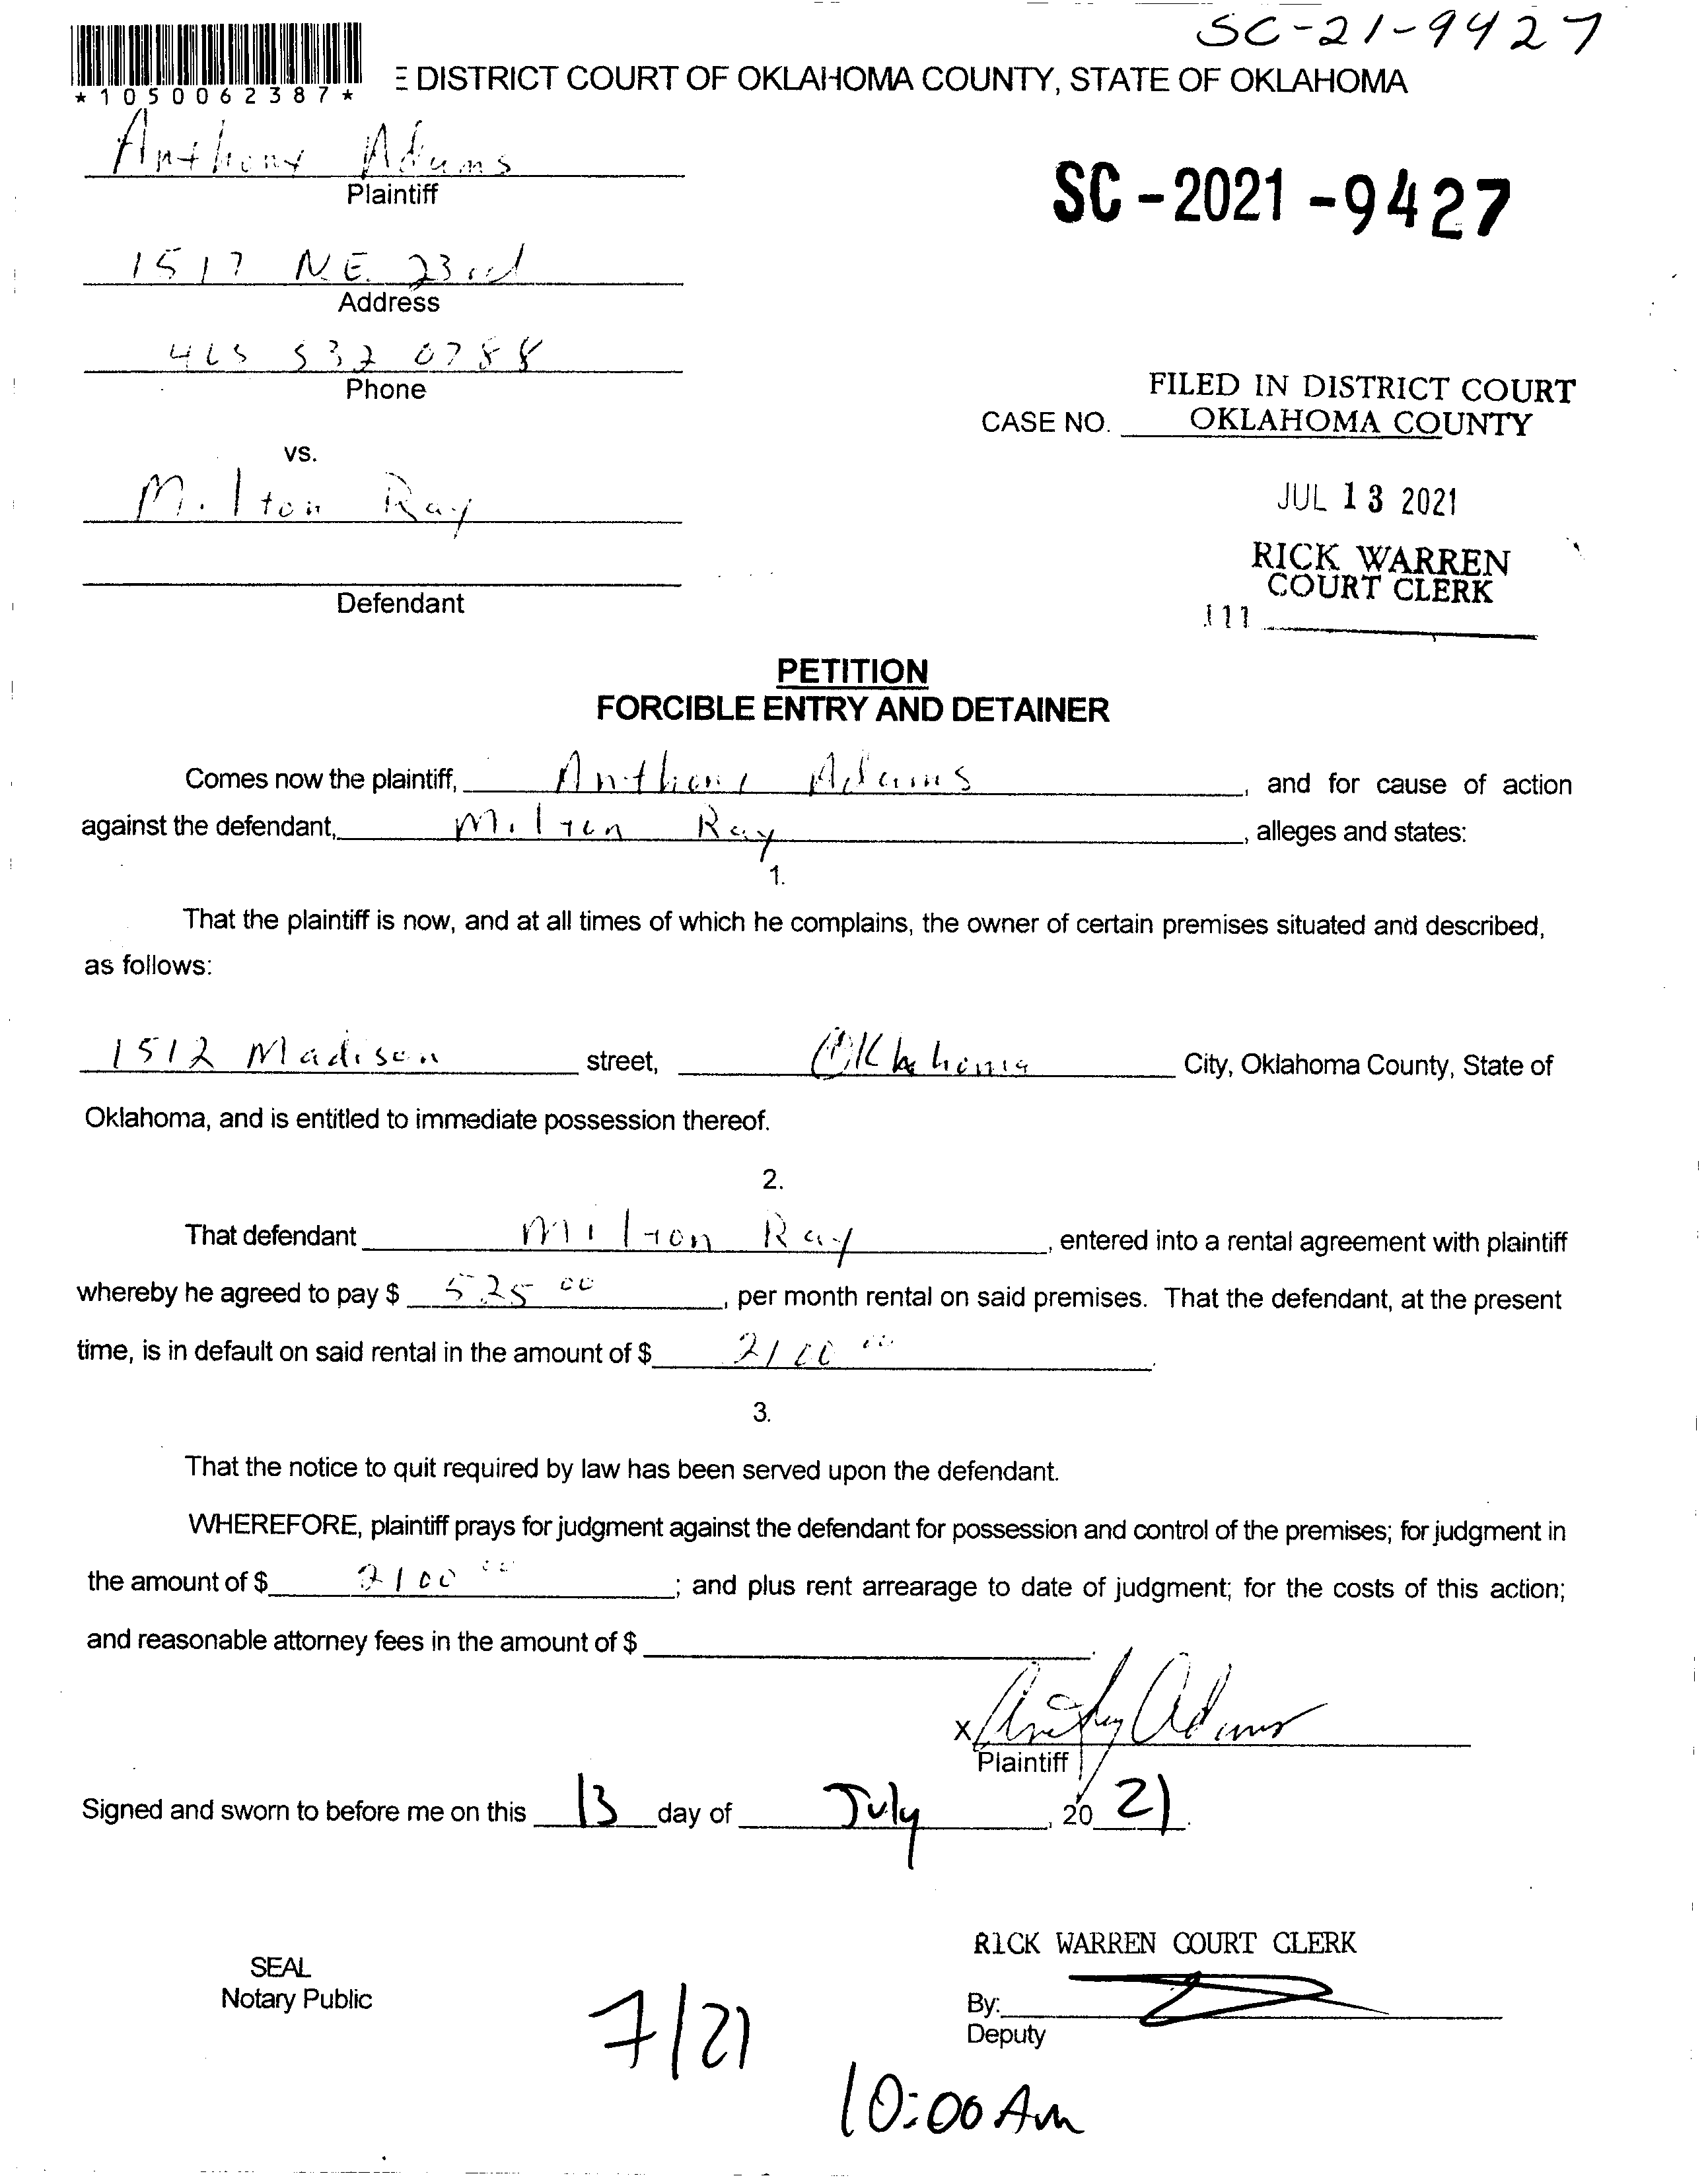 SC-21-9427
*1050062387*
E DISTRICT COURT OF OKLAHOMA COUNTY, STATE OF OKLAHOMA
Anthony Adams
Plaintiff
SC-2021-9427
1517 N.E. 23rd
Address
405 532 0788
Phone
FILED IN DISTRICT COURT
CASE NO. OKLAHOMA COUNTY
vs.
Milton Ray
JUL 13 2021
RICK WARREN
COURT CLERK
Defendant
111
PETITION
FORCIBLE ENTRY AND DETAINER
Comes now the plaintiff, Anthony Adams, and for cause of action
against the defendant, Milton Ray, alleges and states:
1.
That the plaintiff is now, and at all times of which he complains, the owner of certain premises situated and described,
as follows:
1512 Madison street, Oklahoma City, Oklahoma County, State of
Oklahoma, and is entitled to immediate possession thereof.
2.
That defendant Milton Ray, entered into a rental agreement with plaintiff
whereby he agreed to pay $ 525 00, per month rental on said premises. That the defendant, at the present
time, is in default on said rental in the amount of $ 2100 00.
3.
That the notice to quit required by law has been served upon the defendant.
WHEREFORE, plaintiff prays for judgment against the defendant for possession and control of the premises; for judgment in
the amount of $ 2100 00; and plus rent arrearage to date of judgment; for the costs of this action;
and reasonable attorney fees in the amount of $ .
X Anthony Adams
Plaintiff
Signed and sworn to before me on this 13 day of July, 20 21.
RICK WARREN COURT CLERK
SEAL
Notary Public
By:
Deputy
7/21
10:00 Am